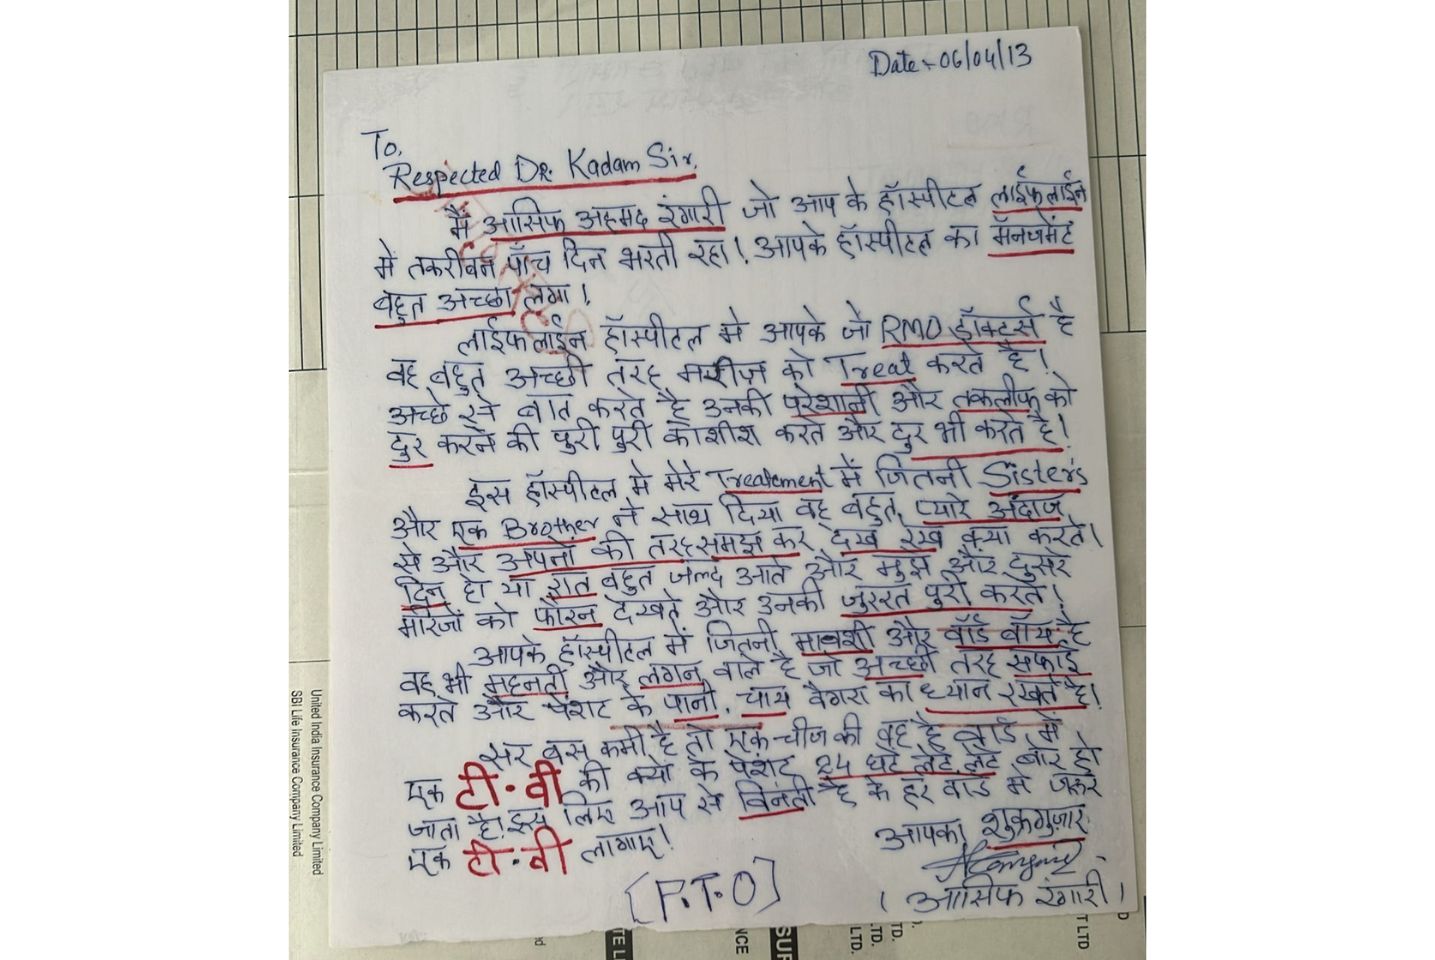 Date:- 06/04/13
To,
Respected DR. Kadam Sir,
मैं आसिफ अहमद रंगारी जो आप के हॉस्पीटल लाईफलाईन
में तकरीबन पाँच दिन भरती रहा!. आपके हॉस्पीटल का मॅनेजमेंट
बहुत अच्छा लगा!.
लाईफलाईन हॉस्पीटल मे आपके जो RMO डॉक्टर्स है
वह बहुत अच्छी तरह मरीज़ को Treat करते है!
अच्छे से बात करते है उनकी परेशानी और तकलीफ को
दुर करने की पुरी पुरी कोशीश करते और दुर भी करते है!
इस हॉस्पीटल मे मेरे Treatement में जितनी Sister's
और एक Brother ने साथ दिया वह बहुत प्यारे अंदाज
से और अपनों की तरह समझ कर देख रेख क्या करते!
दिन हो या रात बहुत जल्द आते और मुझे और दुसरे
मरिजों को फौरन देखते और उनकी जुररत पुरी करते!
आपके हॉस्पीटल में जितनी मावशी और वॉर्ड बॉय है
वह भी महनती और लगन वाले है जो अच्छी तरह सफाई
करते और पेशंट के पानी, चाय वैगरा का ध्यान रखते है!
सर बस कमी है तो एक चीज की वह है वार्ड में
एक टी.वी की क्यो के पेशंट 24 घंटे लेटे लेटे बोर हो
जाता है! इस लिए आप से विनंती है के हर वार्ड मे जरूर
एक टी.वी लागाए!
आपका शुक्रगुज़ार
( आसिफ रंगारी )
[P.T.O]
United India Insurance Company Limited
SBI Life Insurance Company Limited